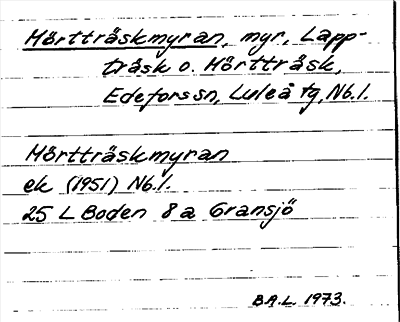 Mörtträskmyran, myr, Lapp-
träsk o. Mörtträsk,
Edeforssn, Luleå tg, Nb.l.
Mörtträskmyran
ek (1951) Nb.l.
25 L Boden 8a Gransjö
B.A.L. 1973.